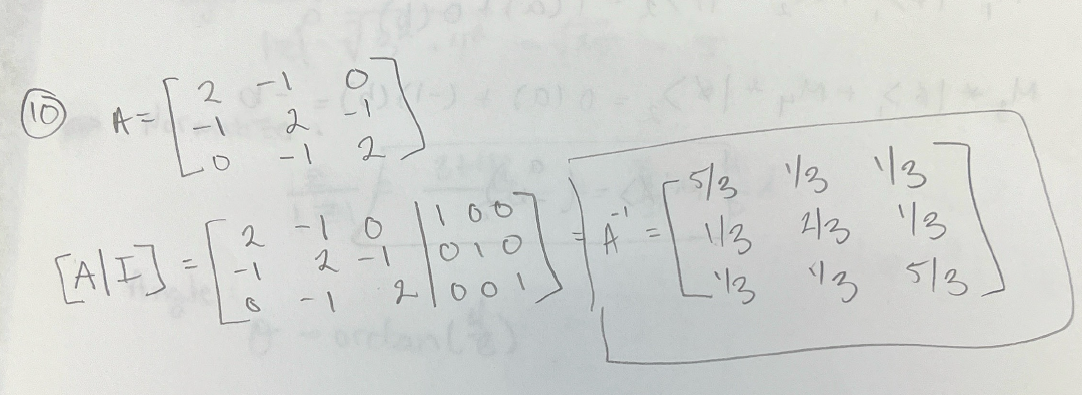 ⑩ A = [ 2 -1 0
-1 2 -1
0 -1 2 ]
[A|I] = [ 2 -1 0 | 1 0 0
-1 2 -1 | 0 1 0
0 -1 2 | 0 0 1 ] = A⁻¹ = [ 5/3 1/3 1/3
1/3 2/3 1/3
1/3 1/3 5/3 ]